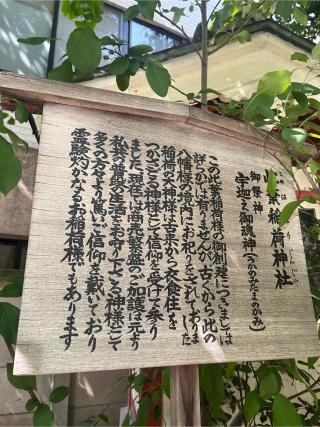 此葉稲荷神社
御祭神
宇迦之御魂神(うかのみたまのかみ)
この此葉稲荷様の御創建につきましては
詳かでは有りませんが、古くから此の
八幡様の境内にお祀りをされておりました
稲荷の神様は古来から衣食住を
つかさどる神様として信仰を受けて参り
ました、現在は商売繁盛のご加護は元より
私達の普段の生活をお守り下さる神様として
多くの方々より篤いご信仰を戴いており
霊験灼かなるお稲荷様でもあります